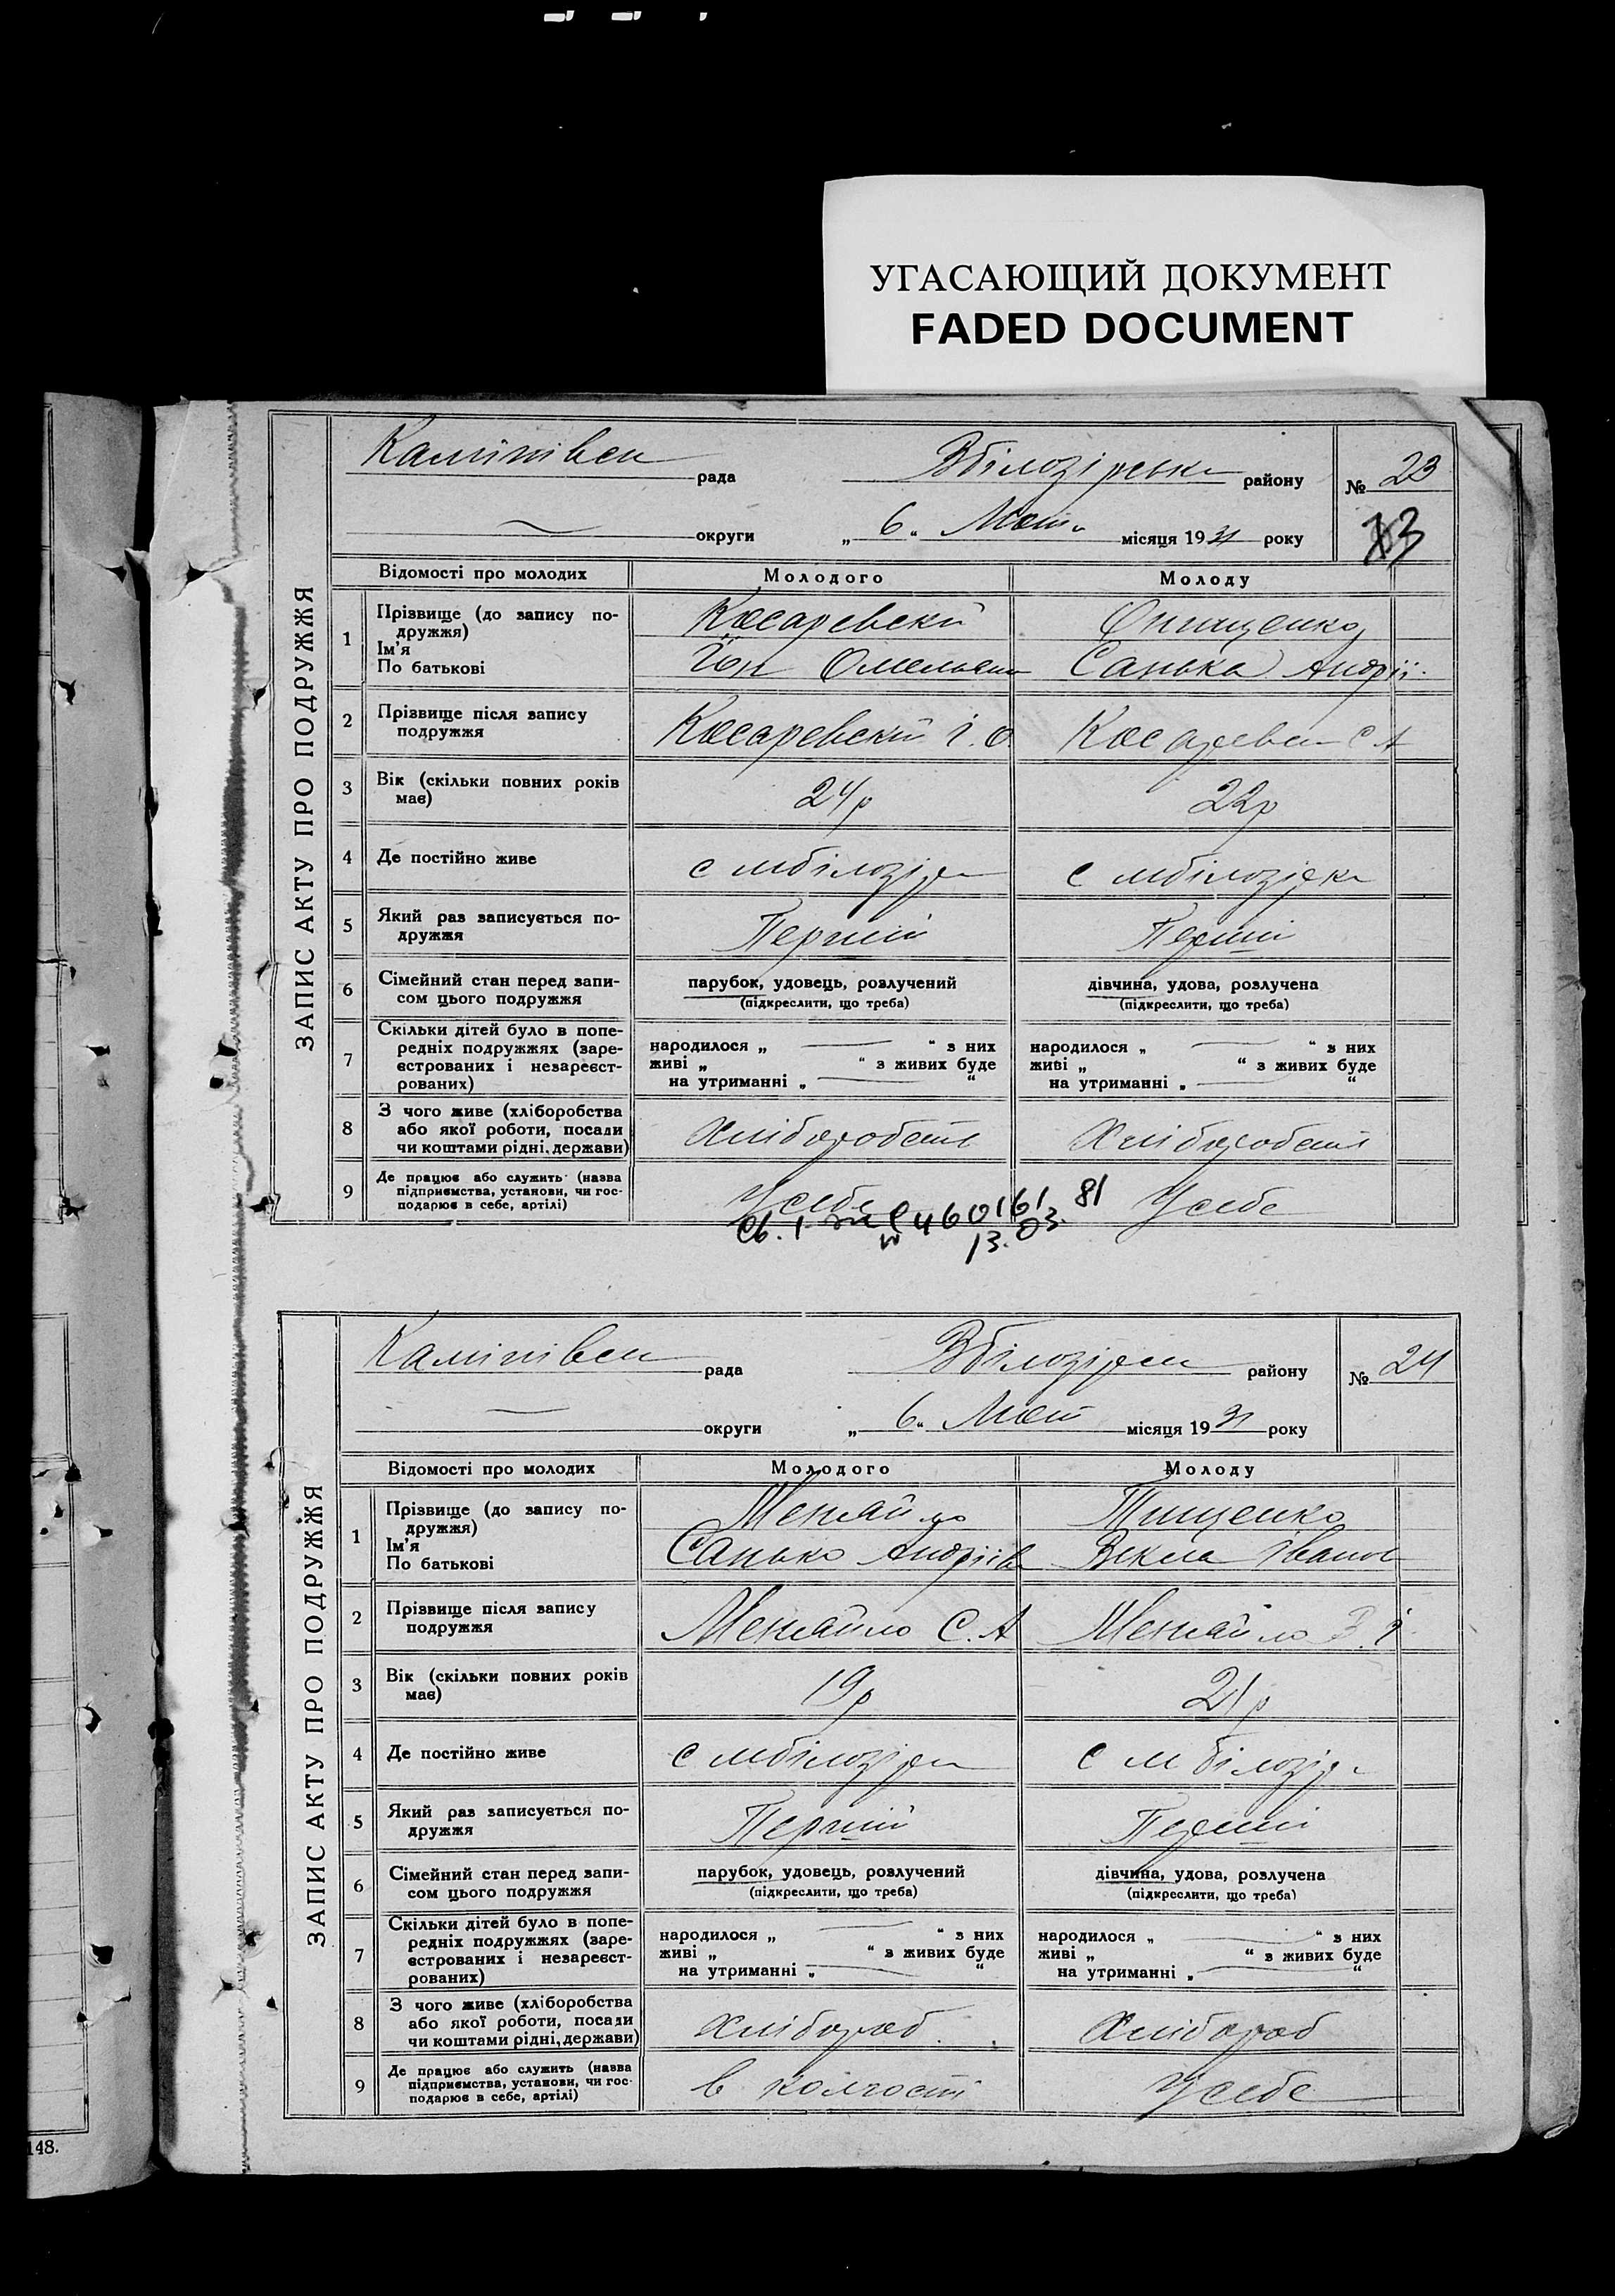 УГАСАЮЩИЙ ДОКУМЕНТ
FADED DOCUMENT
ЗАПИС АКТУ ПРО ПОДРУЖЖЯ
рада
району
№ 23
округи „ 6 “ місяця 1931 року
Відомості про молодих Молодого Молоду
1 Прізвище (до запису по-
дружжя)
Ім’я
По батькові
Косаревский Онищенко
Санька Андрії
2 Прізвище після запису
подружжя
Косаревский І. О С А
3 Вік (скільки повних років
має)
24р 22р
4 Де постійно живе
5 Який раз записується по-
дружжя
Перший Перший
6 Сімейний стан перед запи-
сом цього подружжя
парубок, удовець, розлучений дівчина, удова, розлучена
(підкреслити, що треба) (підкреслити, що треба)
7 Скільки дітей було в попе-
редніх подружжях (заре-
єстрованих і незареєст-
рованих)
народилося „ “ з них народилося „ “ з них
живі „ “ з живих буде живі „ “ з живих буде
на утриманні „ “ на утриманні „ “
8 З чого живе (хліборобства
або якої роботи, посади
чи коштами рідні, держави)
9 Де працює або служить (назва
підприємства, установи, чи гос-
подарює в себе, артілі)
У себе У себе
460161 81
13. 03.
ЗАПИС АКТУ ПРО ПОДРУЖЖЯ
рада
району
№ 24
округи „ 6 “ місяця 1931 року
Відомості про молодих Молодого Молоду
1 Прізвище (до запису по-
дружжя)
Ім’я
По батькові
Менайло Тищенко
Санько Андріїв Векла Іванов
2 Прізвище після запису
подружжя
Менайло С. А Менайло В. І
3 Вік (скільки повних років
має)
19р 21р
4 Де постійно живе
5 Який раз записується по-
дружжя
Перший Перший
6 Сімейний стан перед запи-
сом цього подружжя
парубок, удовець, розлучений дівчина, удова, розлучена
(підкреслити, що треба) (підкреслити, що треба)
7 Скільки дітей було в попе-
редніх подружжях (заре-
єстрованих і незареєст-
рованих)
народилося „ “ з них народилося „ “ з них
живі „ “ з живих буде живі „ “ з живих буде
на утриманні „ “ на утриманні „ “
8 З чого живе (хліборобства
або якої роботи, посади
чи коштами рідні, держави)
хлібороб хлібороб
9 Де працює або служить (назва
підприємства, установи, чи гос-
подарює в себе, артілі)
в колгоспі У себе
148.